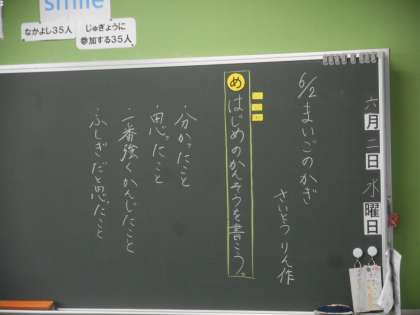 smile
なかよし35人
じゅぎょうに
参加する35人
六月二日水曜日
6/2 まいごのかぎ
さいとうりん作
め はじめのかんそうを書こう。
・分かったこと
・思ったこと
・一番強くかんじたこと
・ふしぎだと思ったこと